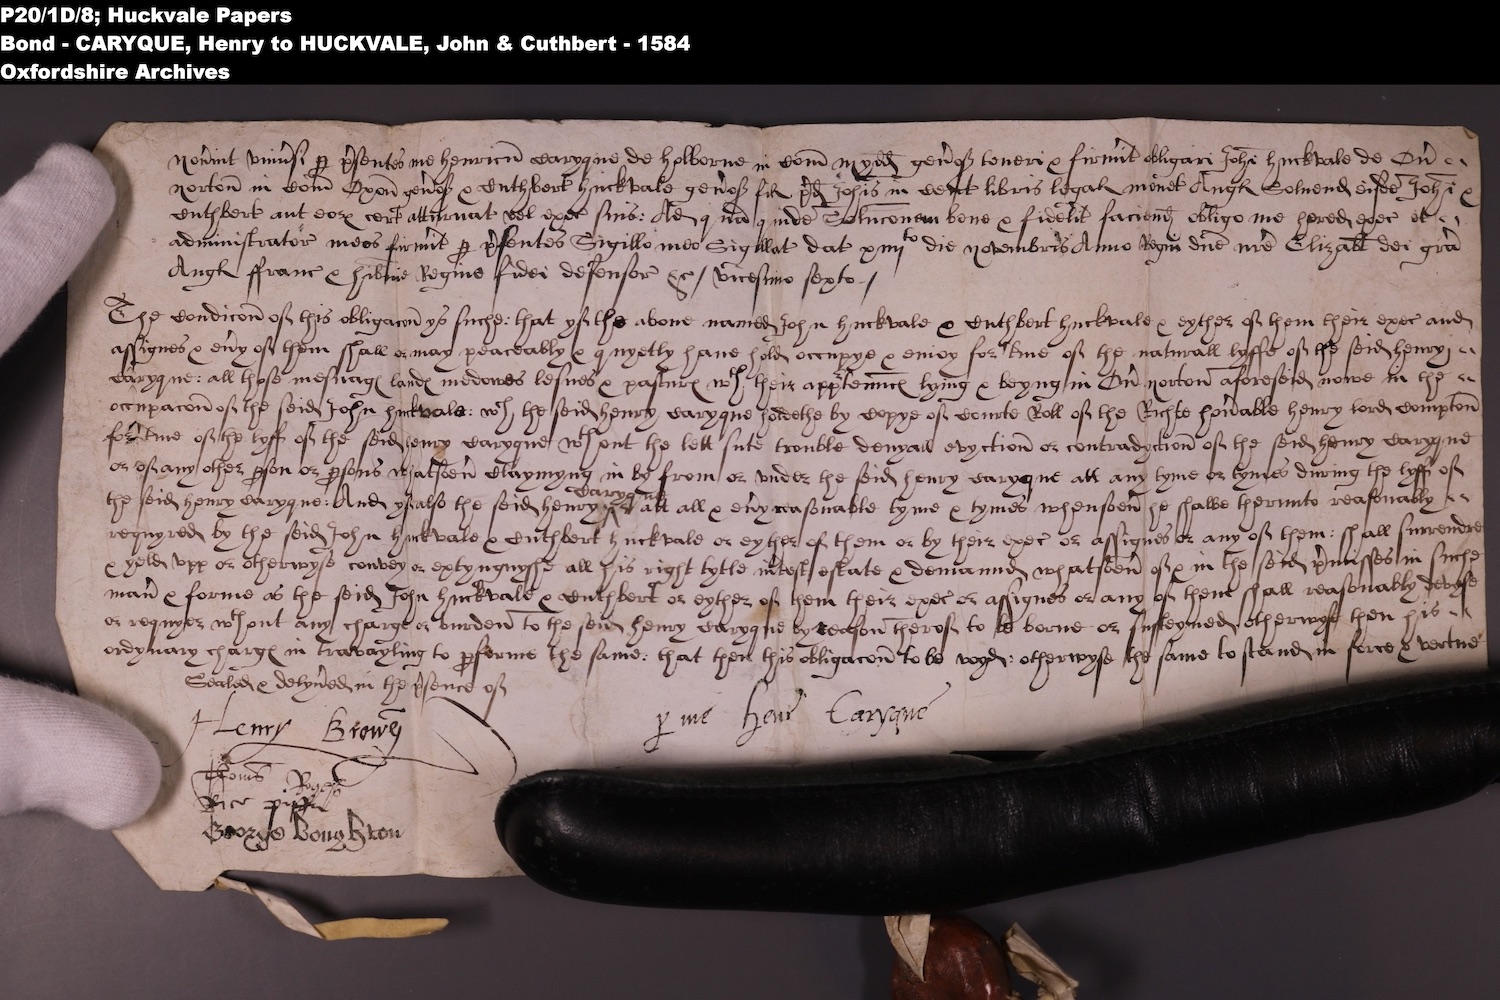 P20/1D/8; Huckvale Papers
Bond - CARYQUE, Henry to HUCKVALE, John & Cuthbert - 1584
Oxfordshire Archives
Nov͛int univ͛si p̱ p͛sentes me henricū Caryque de holborne in Com̄ Mydd gen͛oẜ teneri & firmit͛ obligari Joh̄i huckvale de Ov͛
norton in Com̄ Oxon̄ gen͛oẜ & Cuthbert huckvale gen͛oẜ fil p͛d Joh̄is in Cent libris legal monet Angl Solvend eisdē Joh̄i &
Cuthbert aut eoꝝ cert͛ atturnat vel exec̄ suis: Ad q a quidē Soluc̄onem bene & fidelit͛ faciend obligo me hered exec̄ et
administrator͛ meos firmit͛ p̱ p͛sentes Sigillo meo Sigillat dat xiiijto die Novembris Anno Regni dn̄e nr̄e Elizab dei gra
Angl ffranc & hib͛nie Regine fidei defensor &c/ vicesimo sexto./
The Condicōn of this obligacōn ys suche: that yf the above named John huckvale & Cuthbert huckvale & eyther of them their exec̄ and
assignes & ev͛y of them shall or may peaceably & quyetly have hold occupye & enioy for t͛me of the naturall lyffe of the seid henry
Caryque: all those mesuagꝭ landꝭ medowes lesues & pasturꝭ wth their app͛tenn̄cꝭ lying & beyng in Ov͛ norton aforeseid nowe in the
occupacōn of the seid John huckvale: wch the seid henry Caryque holdethe by Copye of Courte Roll of the Righte hon͛able henry lord Compton
for t͛me of the lyff of the seid henry Caryque wthout the lett sute trouble denyall evyction or contradyction of the seid henry Caryque
or of any other p̱son or p̱sons whatsoev͛ Claymyng in by from or under the seid henry Caryque att any tyme or tymes during the lyff of
the seid henry Caryque: And yf also the seid henry Caryque att all & ev͛y reasonable tyme & tymes whensoev͛ he shalbe therunto reasonably
requyred by the seid John huckvale & Cuthbert huckvale or eyther of them or by their exec̄ or assignes or any of them: shall surrendre
& yeld upp or otherwyse convey or extyngnyshe all his right tytle int͛est estate & demaund whatsoev͛ of & in the seid p͛misses in suche
man͛ & forme as the seid John huckvale & Cuthbert or eyther of them their exec̄ or assignes or any of them shall reasonably devyse
or requyer wthout any charge or burden to the seid henry Caryque by reason therof to be borne or susteyned otherwyse then his
ordynary chargꝭ in travayling to p̱forme the same: that then this obligacōn to be voyd: otherwyse the same to stand in force & vertue
Sealed & delyv͛ed in the p͛sence of
p̱ me Henr͛ Caryque
Henry Brown
Thom͛s Rogers
Rice
George Boughton